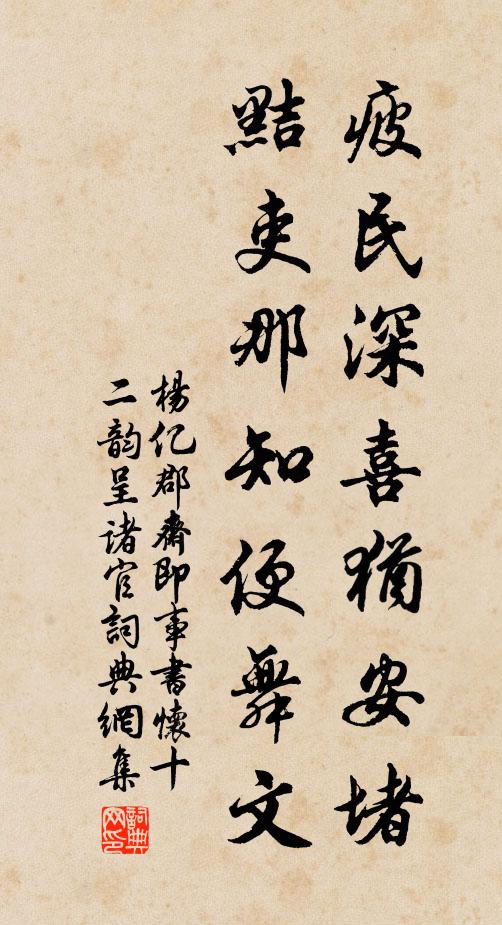 疲民深喜猶安堵
黠吏那知便舞文
楊亿郡齋即事書懷十
二韵呈诸官詞典網集
詞典网印